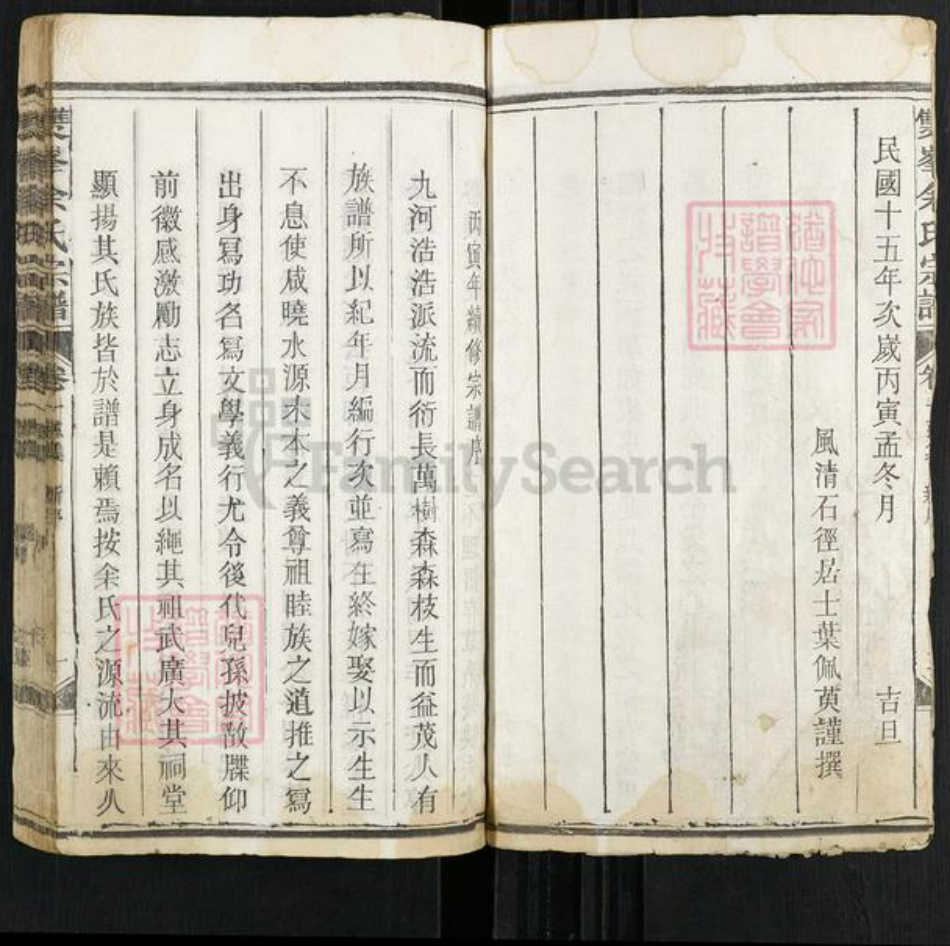 民國十五年次歲丙寅孟冬月 古旦
風清石徑居士葉佩萸謹撰
丙寅年續修宗譜序
九河浩浩派流而衍長萬樹森森枝生而益茂人有
族譜所以紀年月編行次並寫生終嫁娶以示生生
不息使咸曉水源木本之義尊祖睦族之道推之寫
出身寫功名寫文學義行尤令後代兒孫披敔牒仰
前徽感激勵志立身成名以繩其祖武廣大其祠堂
顯揚其氏族皆於譜是賴焉按余氏之源流由來久
雙峯余氏宗譜
雙峯余氏宗譜 卷一
FamilySearch
譜學會